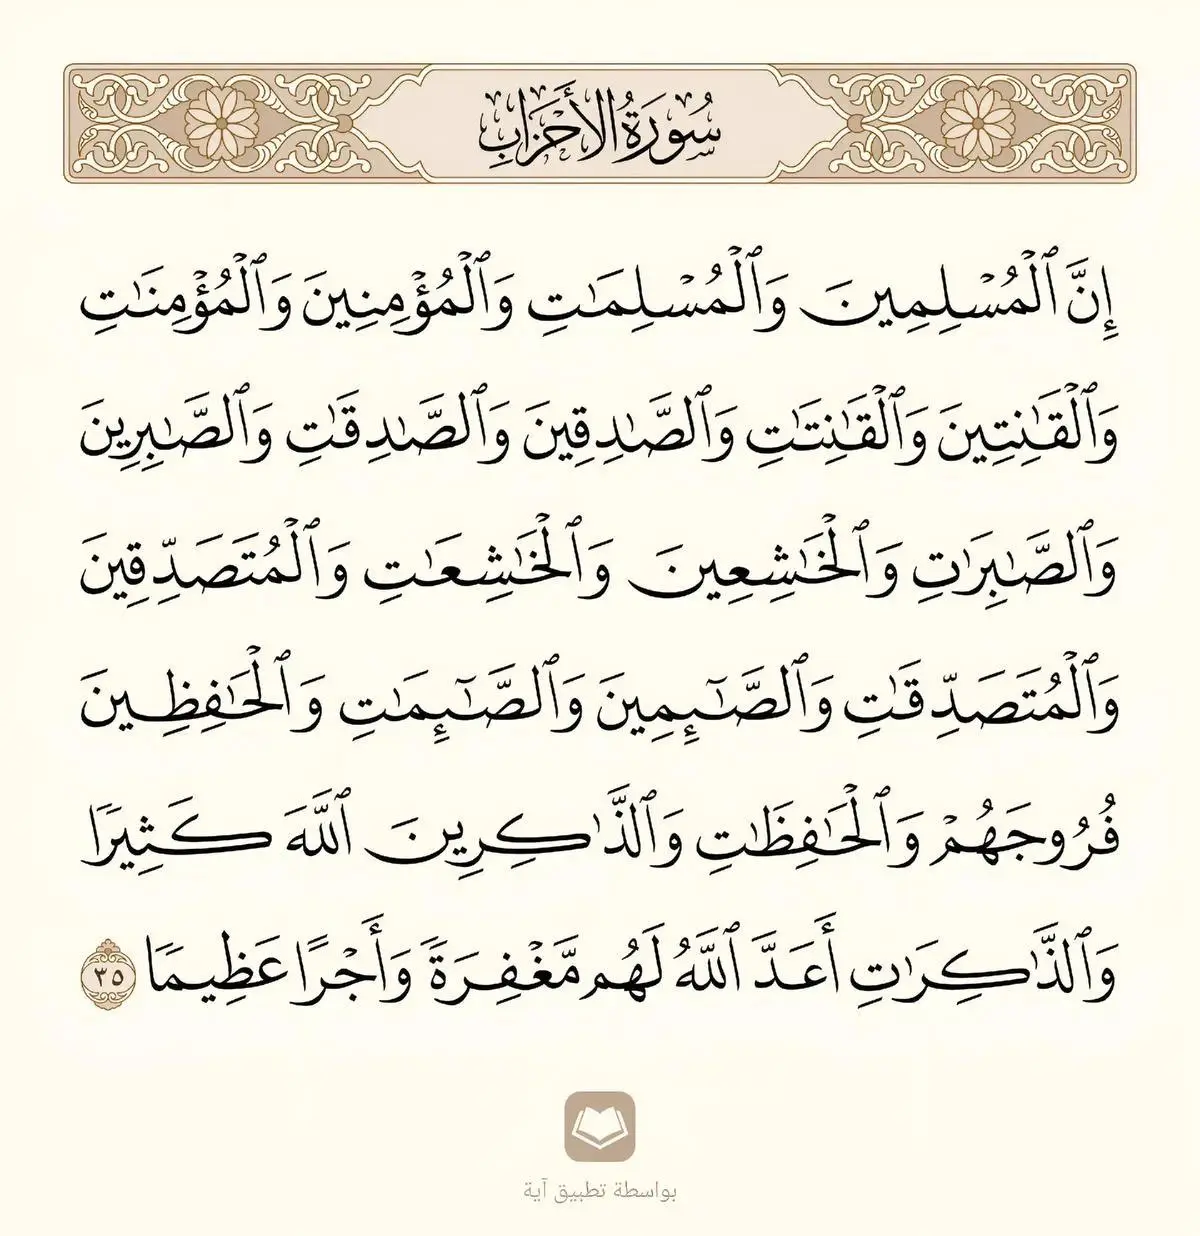 سُورَةُ الأَحْزَابِ
إِنَّ ٱلْمُسْلِمِينَ وَٱلْمُسْلِمَـٰتِ وَٱلْمُؤْمِنِينَ وَٱلْمُؤْمِنَـٰتِ
وَٱلْقَـٰنِتِينَ وَٱلْقَـٰنِتَـٰتِ وَٱلصَّـٰدِقِينَ وَٱلصَّـٰدِقَـٰتِ وَٱلصَّـٰبِرِينَ
وَٱلصَّـٰبِرَٰتِ وَٱلْخَـٰشِعِينَ وَٱلْخَـٰشِعَـٰتِ وَٱلْمُتَصَدِّقِينَ
وَٱلْمُتَصَدِّقَـٰتِ وَٱلصَّـٰٓئِمِينَ وَٱلصَّـٰٓئِمَـٰتِ وَٱلْحَـٰفِظِينَ
فُرُوجَهُمْ وَٱلْحَـٰفِظَـٰتِ وَٱلذَّٰكِرِينَ ٱللَّهَ كَثِيرًا
وَٱلذَّٰكِرَٰتِ أَعَدَّ ٱللَّهُ لَهُم مَّغْفِرَةً وَأَجْرًا عَظِيمًا ٣٥
بواسطة تطبيق آية